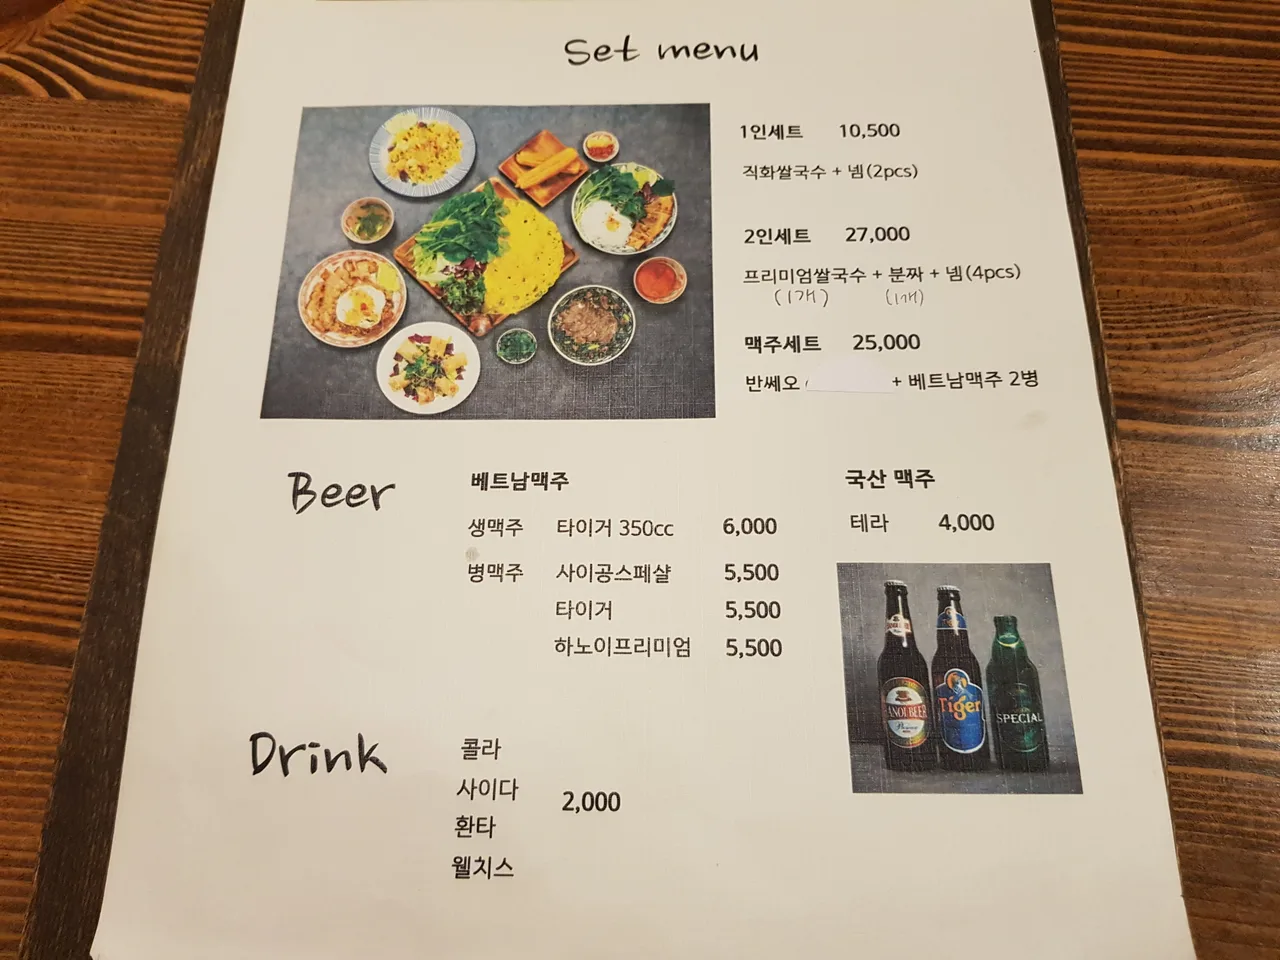 Set menu
1인세트 10,500
직화쌀국수 + 넴(2pcs)
2인세트 27,000
프리미엄쌀국수 + 분짜 + 넴(4pcs)
(1개) (1개)
맥주세트 25,000
반쎄오 + 베트남맥주 2병
Beer
베트남맥주
생맥주 타이거 350cc 6,000
병맥주 사이공스페샬 5,500
타이거 5,500
하노이프리미엄 5,500
국산 맥주
테라 4,000
HANOI BEER
Tiger
SPECIAL
Drink
콜라
사이다
환타
웰치스
2,000